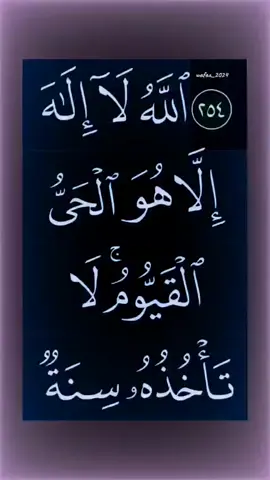 wafaa_2024
٢٥٤ ٱللَّهُ لَآ إِلَٰهَ
إِلَّا هُوَ ٱلْحَىُّ
ٱلْقَيُّومُ ۚ لَا
تَأْخُذُهُۥ سِنَةٌۭ